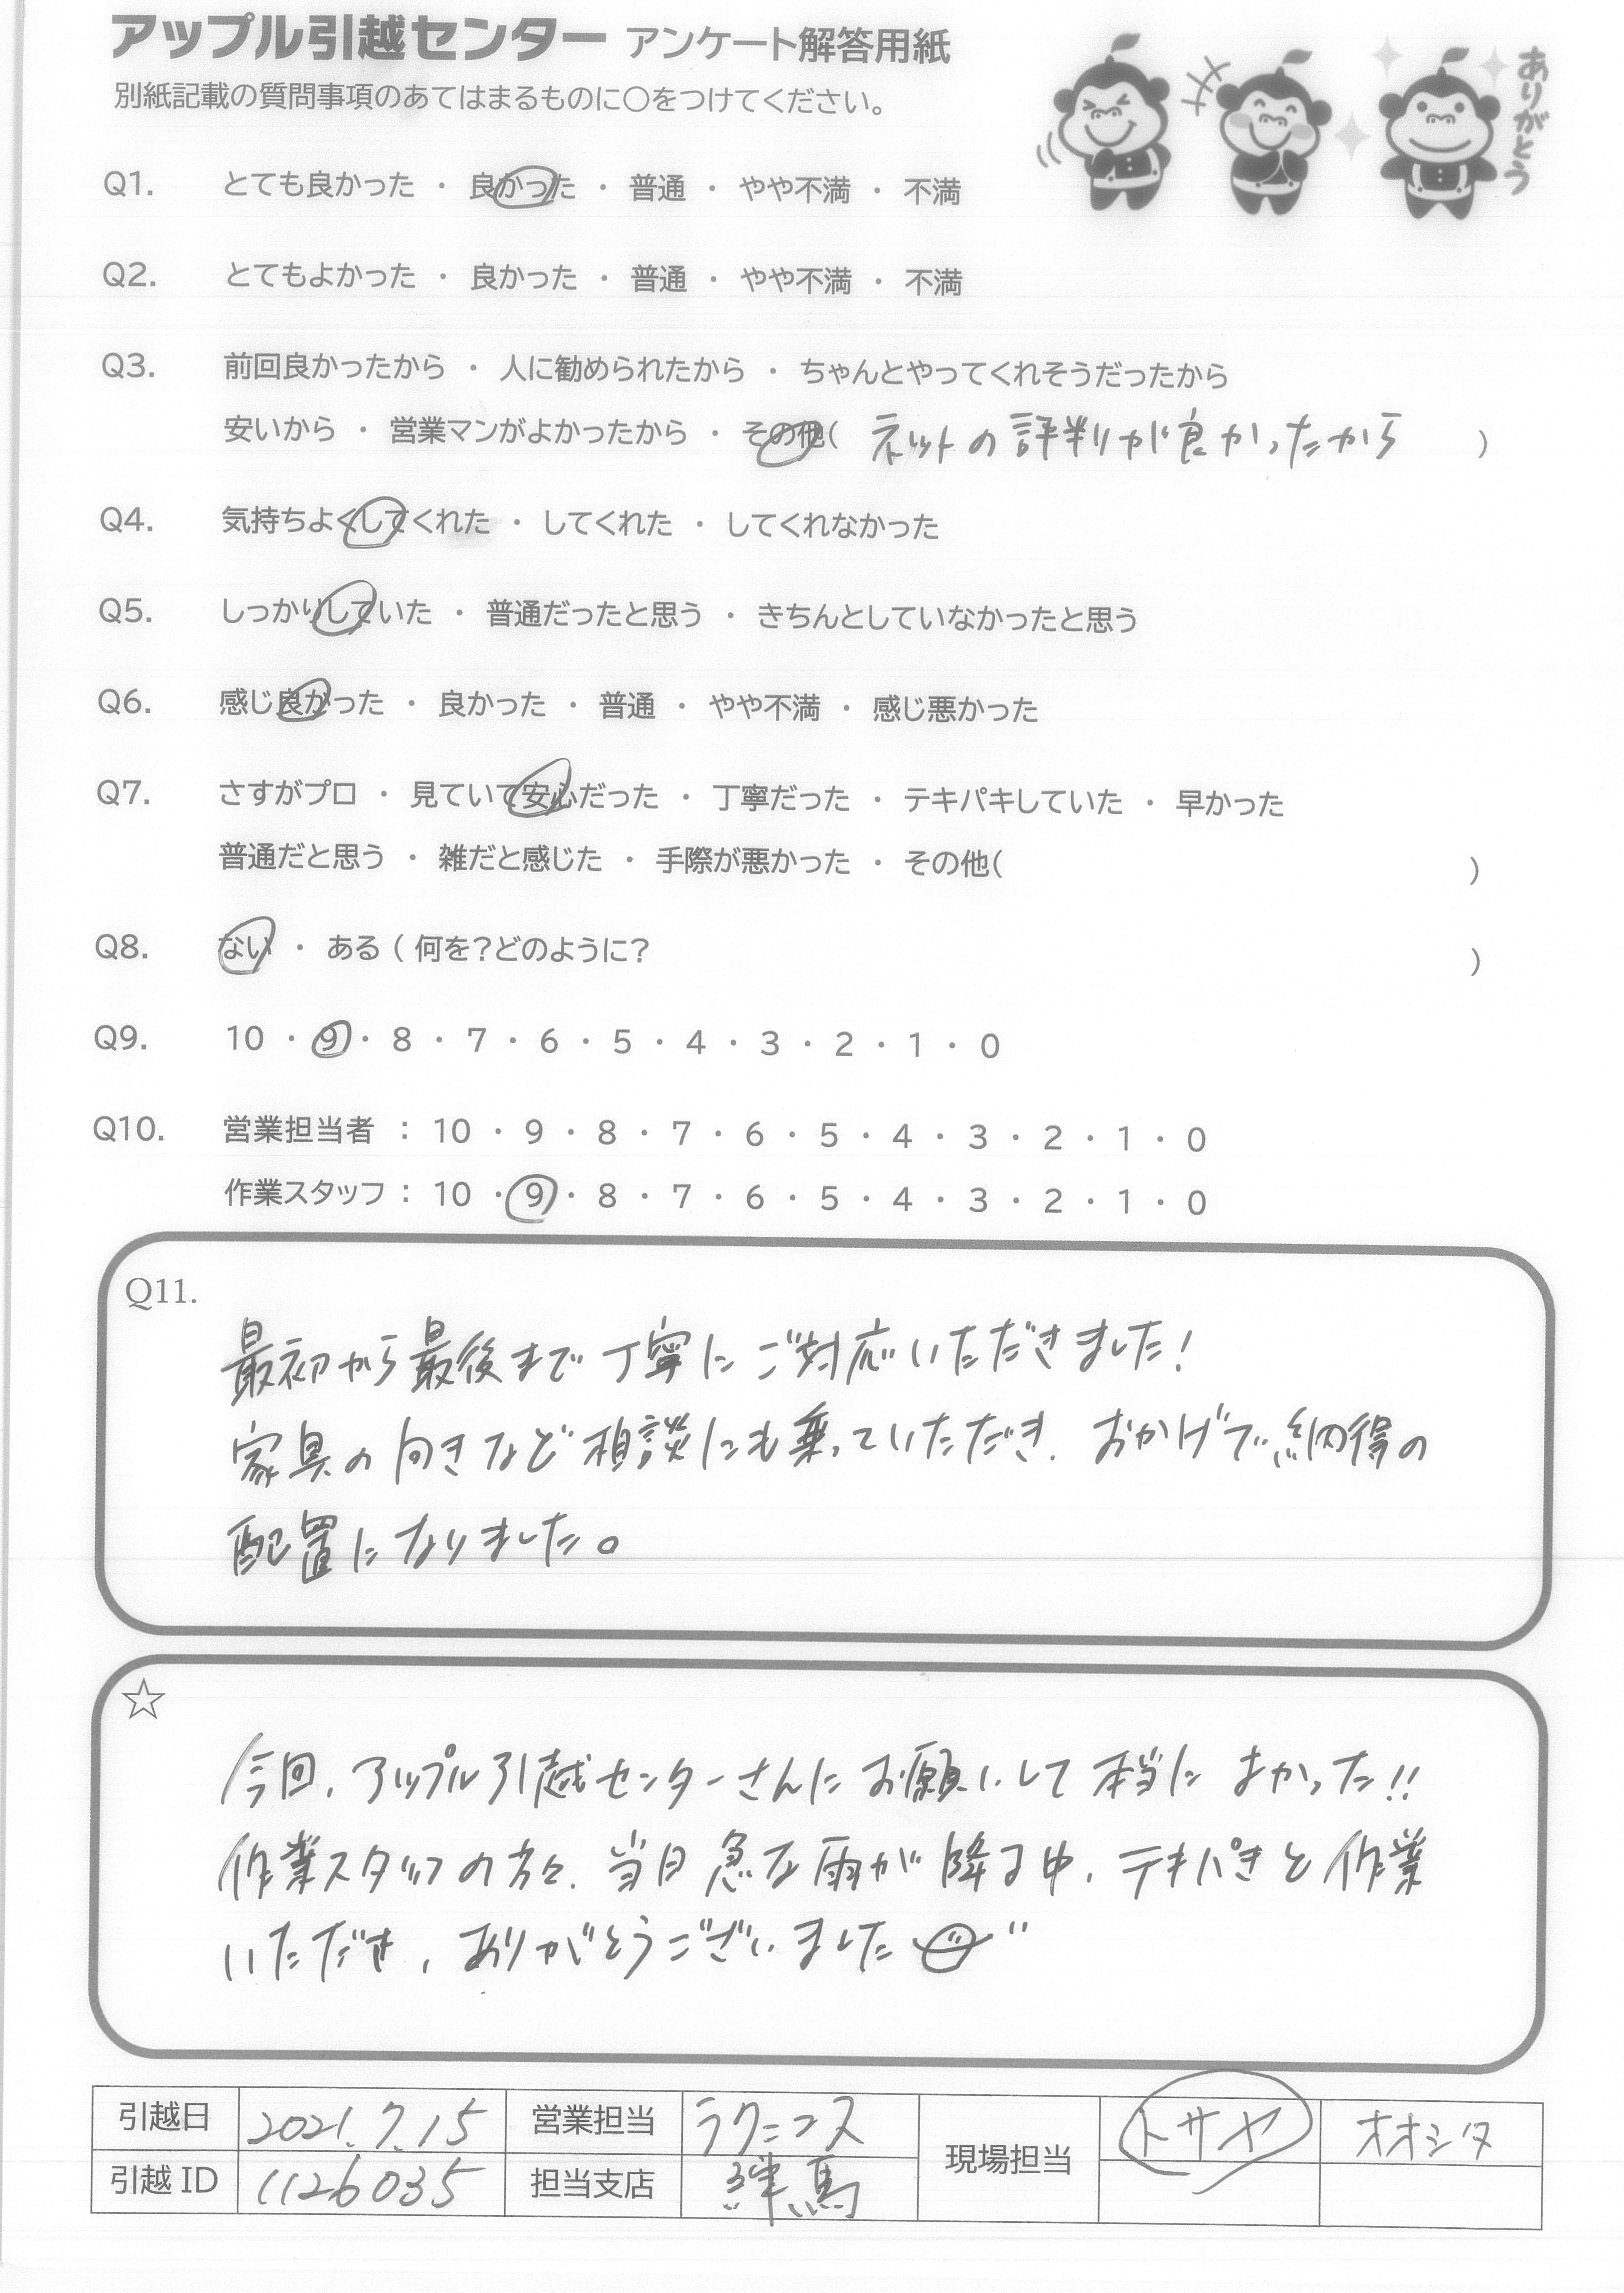 アップル引越センター アンケート解答用紙
別紙記載の質問事項のあてはまるものに〇をつけてください。
ありがとう
Q1. とても良かった ・ 良かった ・ 普通 ・ やや不満 ・ 不満
Q2. とてもよかった ・ 良かった ・ 普通 ・ やや不満 ・ 不満
Q3. 前回良かったから ・ 人に勧められたから ・ ちゃんとやってくれそうだったから
安いから ・ 営業マンがよかったから ・ その他( ネットの評判が良かったから )
Q4. 気持ちよくしてくれた ・ してくれた ・ してくれなかった
Q5. しっかりしていた ・ 普通だったと思う ・ きちんとしていなかったと思う
Q6. 感じ良かった ・ 良かった ・ 普通 ・ やや不満 ・ 感じ悪かった
Q7. さすがプロ ・ 見ていて安心だった ・ 丁寧だった ・ テキパキしていた ・ 早かった
普通だと思う ・ 雑だと感じた ・ 手際が悪かった ・ その他( )
Q8. ない ・ ある ( 何を?どのように? )
Q9. 10 ・ 9 ・ 8 ・ 7 ・ 6 ・ 5 ・ 4 ・ 3 ・ 2 ・ 1 ・ 0
Q10. 営業担当者 : 10 ・ 9 ・ 8 ・ 7 ・ 6 ・ 5 ・ 4 ・ 3 ・ 2 ・ 1 ・ 0
作業スタッフ : 10 ・ 9 ・ 8 ・ 7 ・ 6 ・ 5 ・ 4 ・ 3 ・ 2 ・ 1 ・ 0
Q11.
最初から最後まで丁寧にご対応いただきました!
家具の向きなど相談にも乗っていただき、おかげで納得の
配置になりました。
☆
今回、アップル引越センターさんにお願いして本当によかった!!
作業スタッフの方々、当日急な雨が降る中、テキパキと作業
いただき、ありがとうございました
引越日 2021.7.15 営業担当 ラクニコス 現場担当 トサヤ オオシタ
引越ID 1126035 担当支店 群馬